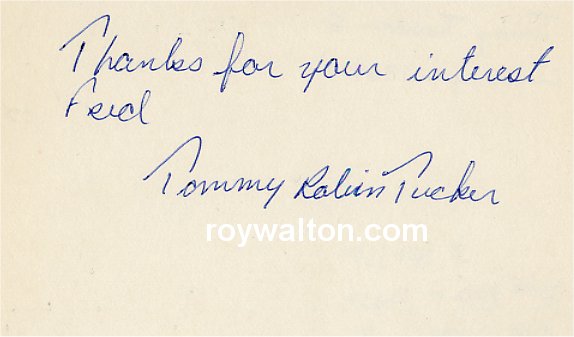 Thanks for your interest
Fred
Tommy Robin Tucker
roywalton.com